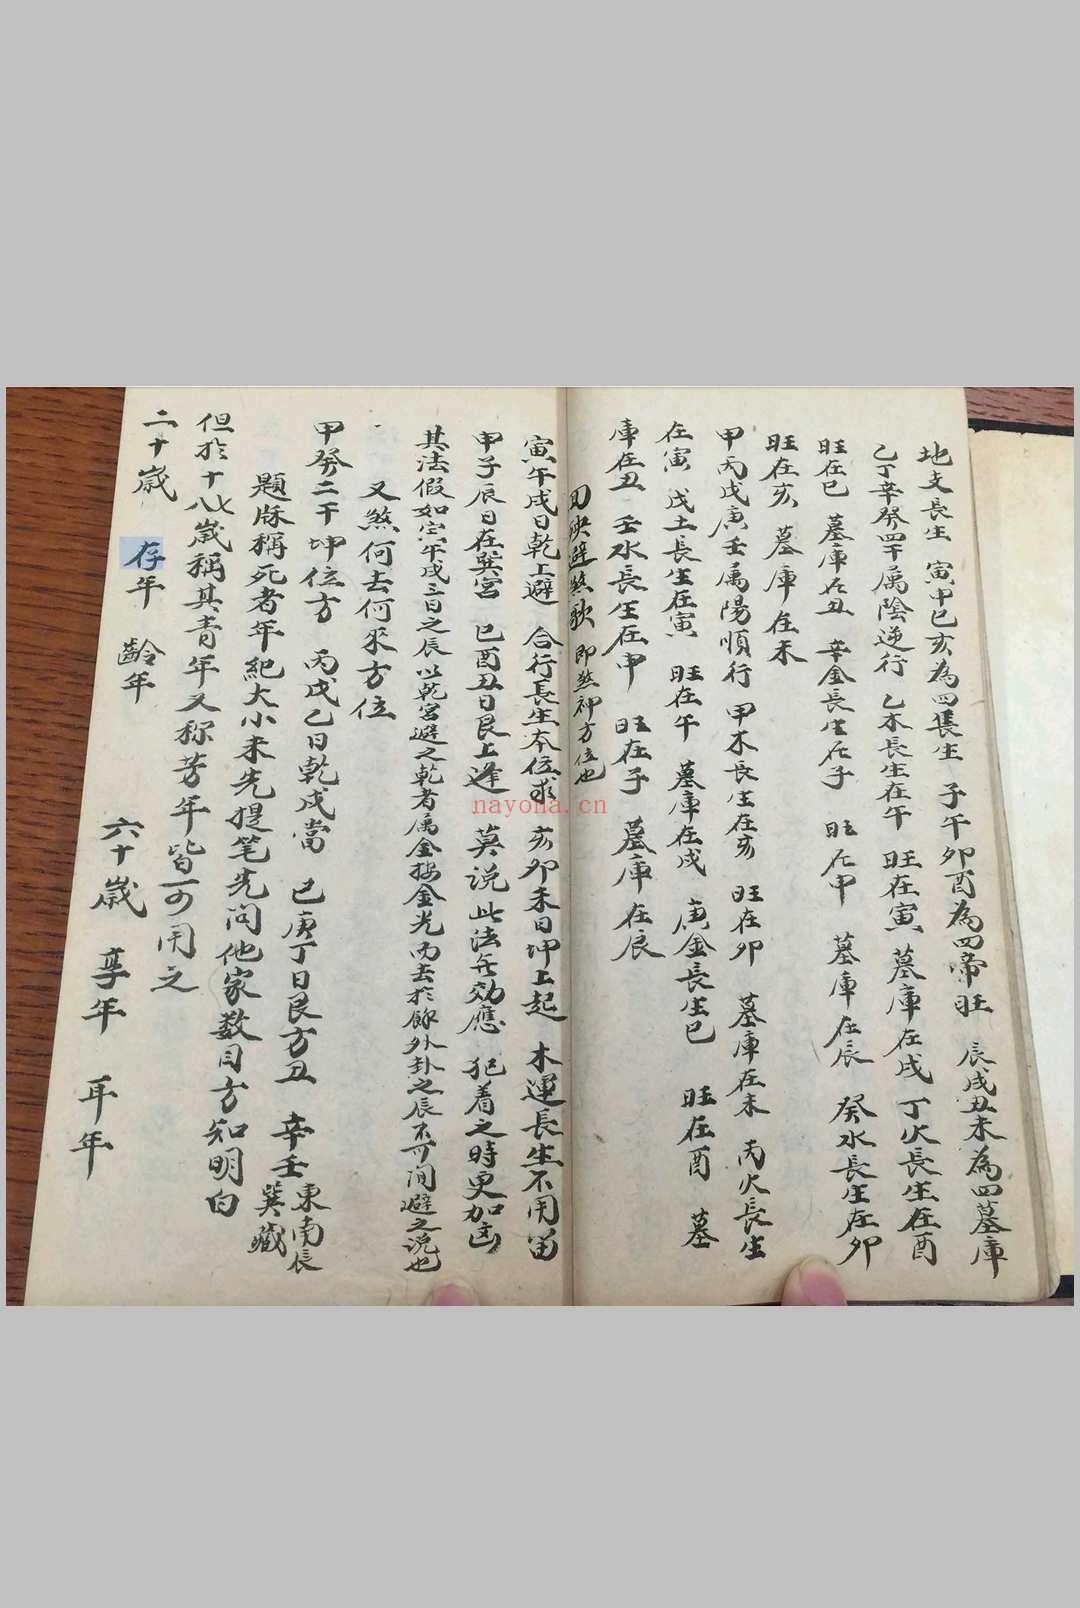 地支長生 寅申巳亥為四長生 子午卯酉為四帝旺 辰戌丑未為四墓庫
乙丁辛癸四干属陰逆行 乙木長生在午 旺在寅 墓庫在戌 丁火長生在酉
旺在巳 墓庫在丑 辛金長生在子 旺在申 墓庫在辰 癸水長生在卯
旺在亥 墓庫在未
甲丙戊庚壬属陽順行 甲木長生在亥 旺在卯 墓庫在未 丙火長生
在寅 戊土長生在寅 旺在午 墓庫在戌 庚金長生巳 旺在酉 墓
庫在丑 壬水長生在申 旺在子 墓庫在辰
殃避煞歌 即煞神方位也
寅午戌日乾上避 合行長生本位求 亥卯未日坤上起 木運長生不用留
申子辰日在巽宮 巳酉丑日艮上逢 莫说此法無効應 犯着之時更加凶
其法假如寅午戌三日之辰以乾宮避之乾者属金按金光而去於餘外卦之辰不可同避之说也
又煞何去何來方位
甲癸二干坤位方 丙戊乙日乾戌當 己庚丁日艮方丑 辛壬東南長巽藏
題稱死者年紀大小未先提笔先问他家数目方知明白
但於十八七歲稱其青年又称芳年皆可用之
二十歲 存年 齡年 六十歲 享年